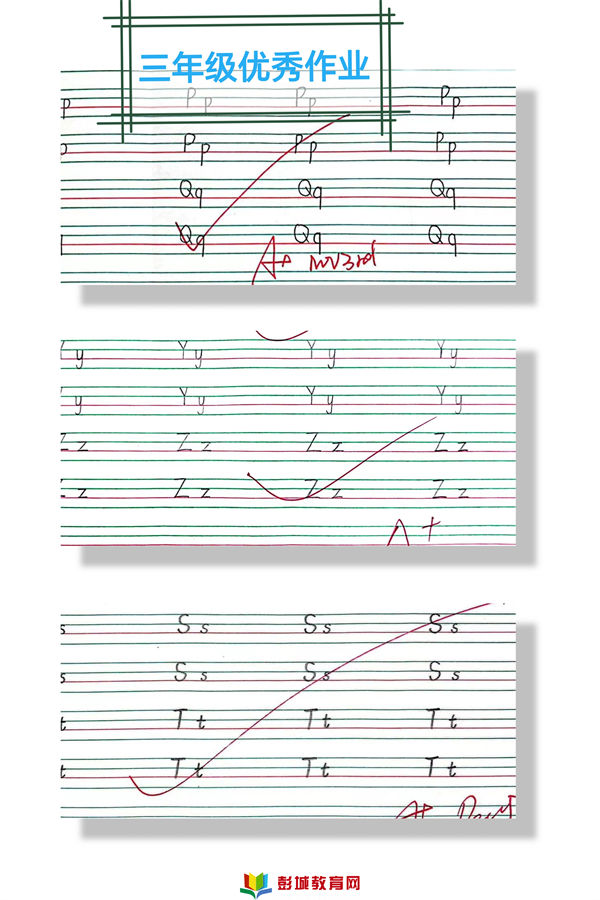 三年级优秀作业
p Pp Pp Pp
p Pp Pp Pp
Qq Qq Qq
Qq Qq Qq
A+
y Yy Yy Yy
y Yy Yy Yy
Zz Zz Zz Zz
Zz Zz Zz Zz
A+
s Ss Ss Ss
s Ss Ss Ss
t Tt Tt Tt
t Tt Tt Tt
A+
彭城教育网